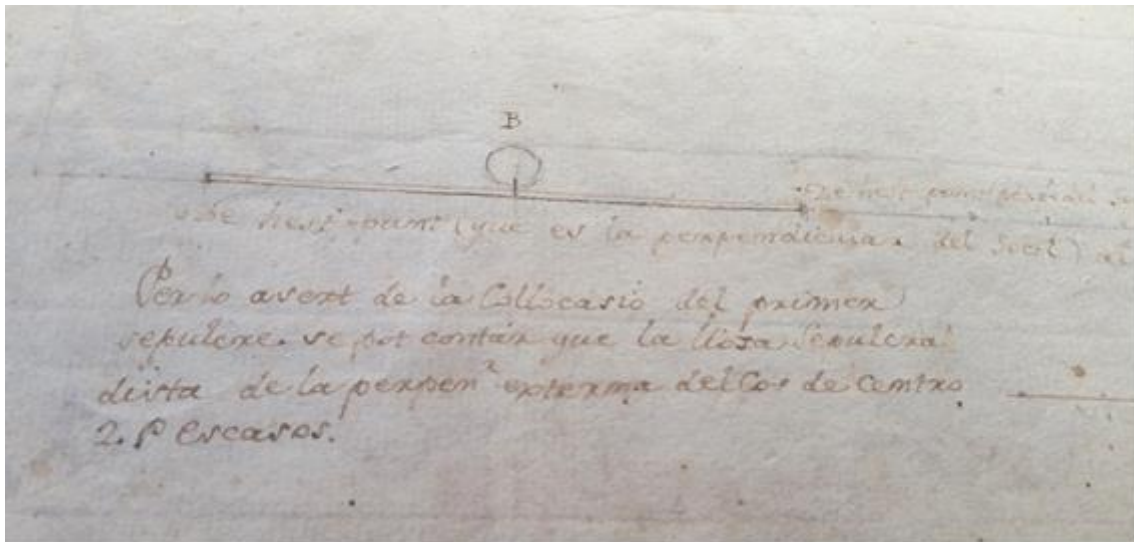 B
De hest punt
De hest punt (que es la perpendicular del Socol) al
Per lo avert de la Collocasió del primer
sepulcre. se pot contár que la llosa Sepulcral
dista de la perpenr. exterma del Cos de Centro
2. P Escasos.